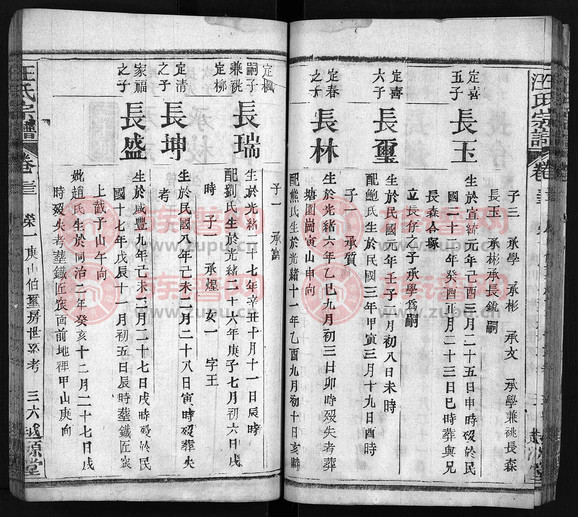 汪氏宗譜
卷三
子三 承學 承彬 承文 承學兼祧長森
長玉 承彬承長銳嗣
定喜
五子
長玉
生於宣統元年己酉三月二十五日申時歿於民
國二十一年癸酉四月二十三日巳時葬與兄
長森合塚
立長仔乙子承學爲嗣
定喜
六子
長璽
生於民國元年壬子 月初八日未時
配鮑氏生於民國三年甲寅三月十九日酉時
子一 承質
定春
之子
長林
生於光緒六年乙巳九月初三日卯時歿失考葬
塘園崗寅山申向
配熊氏生於光緒十一年乙酉九月初十日亥時
子一 承
定楓
嗣子
兼祧
定柳
長瑞
生於光緒 七年辛丑十月十一日辰時
配劉氏生於光緒二十六年庚子七月初六日
時 子一 承燦 女一 字王
定清
之子
長坤
生於民國八年己未二月二十八日寅時歿葬失
考
家福
之子
長盛
生於咸豐九年己未二月二十七日戌時歿於民
國十七年戊辰十一月初五日辰時葬鐵匠
上戴子山午向
趙氏生於同治二年癸亥十二月二十七日戌
時歿失考葬鐵匠 面前地禪甲山庚向
汪氏宗譜
卷三
榮一 庚山伯璽房世系考
三六
越源堂
族譜網
www.zupu.cn